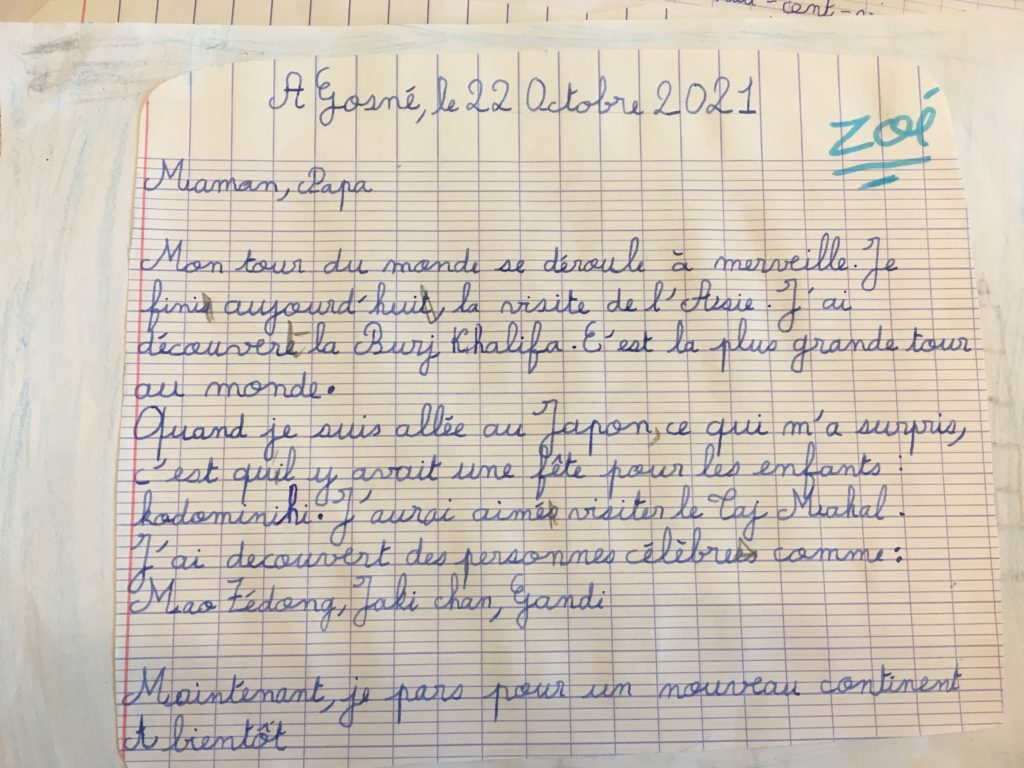 -cent-
A Gosné, le 22 Octobre 2021
zoé
Maman, Papa
Mon tour du monde se déroule à merveille. Je
finis aujourd'hui, la visite de l'Assie. J'ai
découvert la Burj Khalifa. C'est la plus grande tour
au monde.
Quand je suis allée au Japon, ce qui m'a surpris,
c'est quil y avait une fête pour les enfants :
kodominihi. J'aurai aimée visiter le Taj Mahal.
J'ai decouvert des personnes célèbres comme :
Mao Zédong, Jaki chan, Gandi
Maintenant, je pars pour un nouveau continent
A bientôt